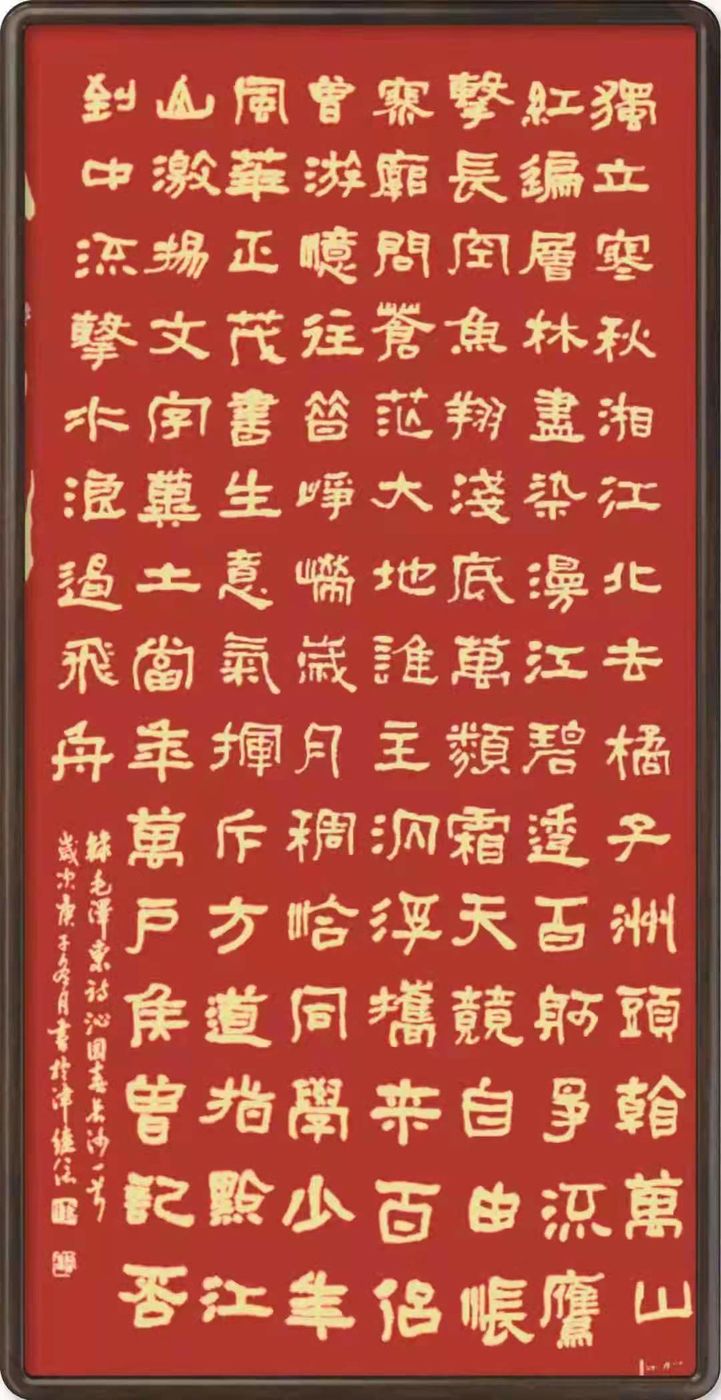 獨立寒秋湘江北去橘子洲頭看萬山
紅編層林盡染漫江碧透百舸爭流鷹
擊長空魚翔淺底萬類霜天競自由悵
寥廓問蒼茫大地誰主沉浮攜来百侶
曾游憶往昔崢嶸歲月稠恰同學少年
風華正茂書生意氣揮斥方遒指點江
山激揚文字糞土當年萬戶侯曾記否
到中流擊水浪過飛舟
錄毛澤東詩沁園春長沙一首
歲次庚子冬月書於津繼信